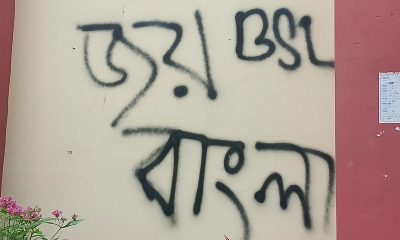 জয় BSL
বাংলা